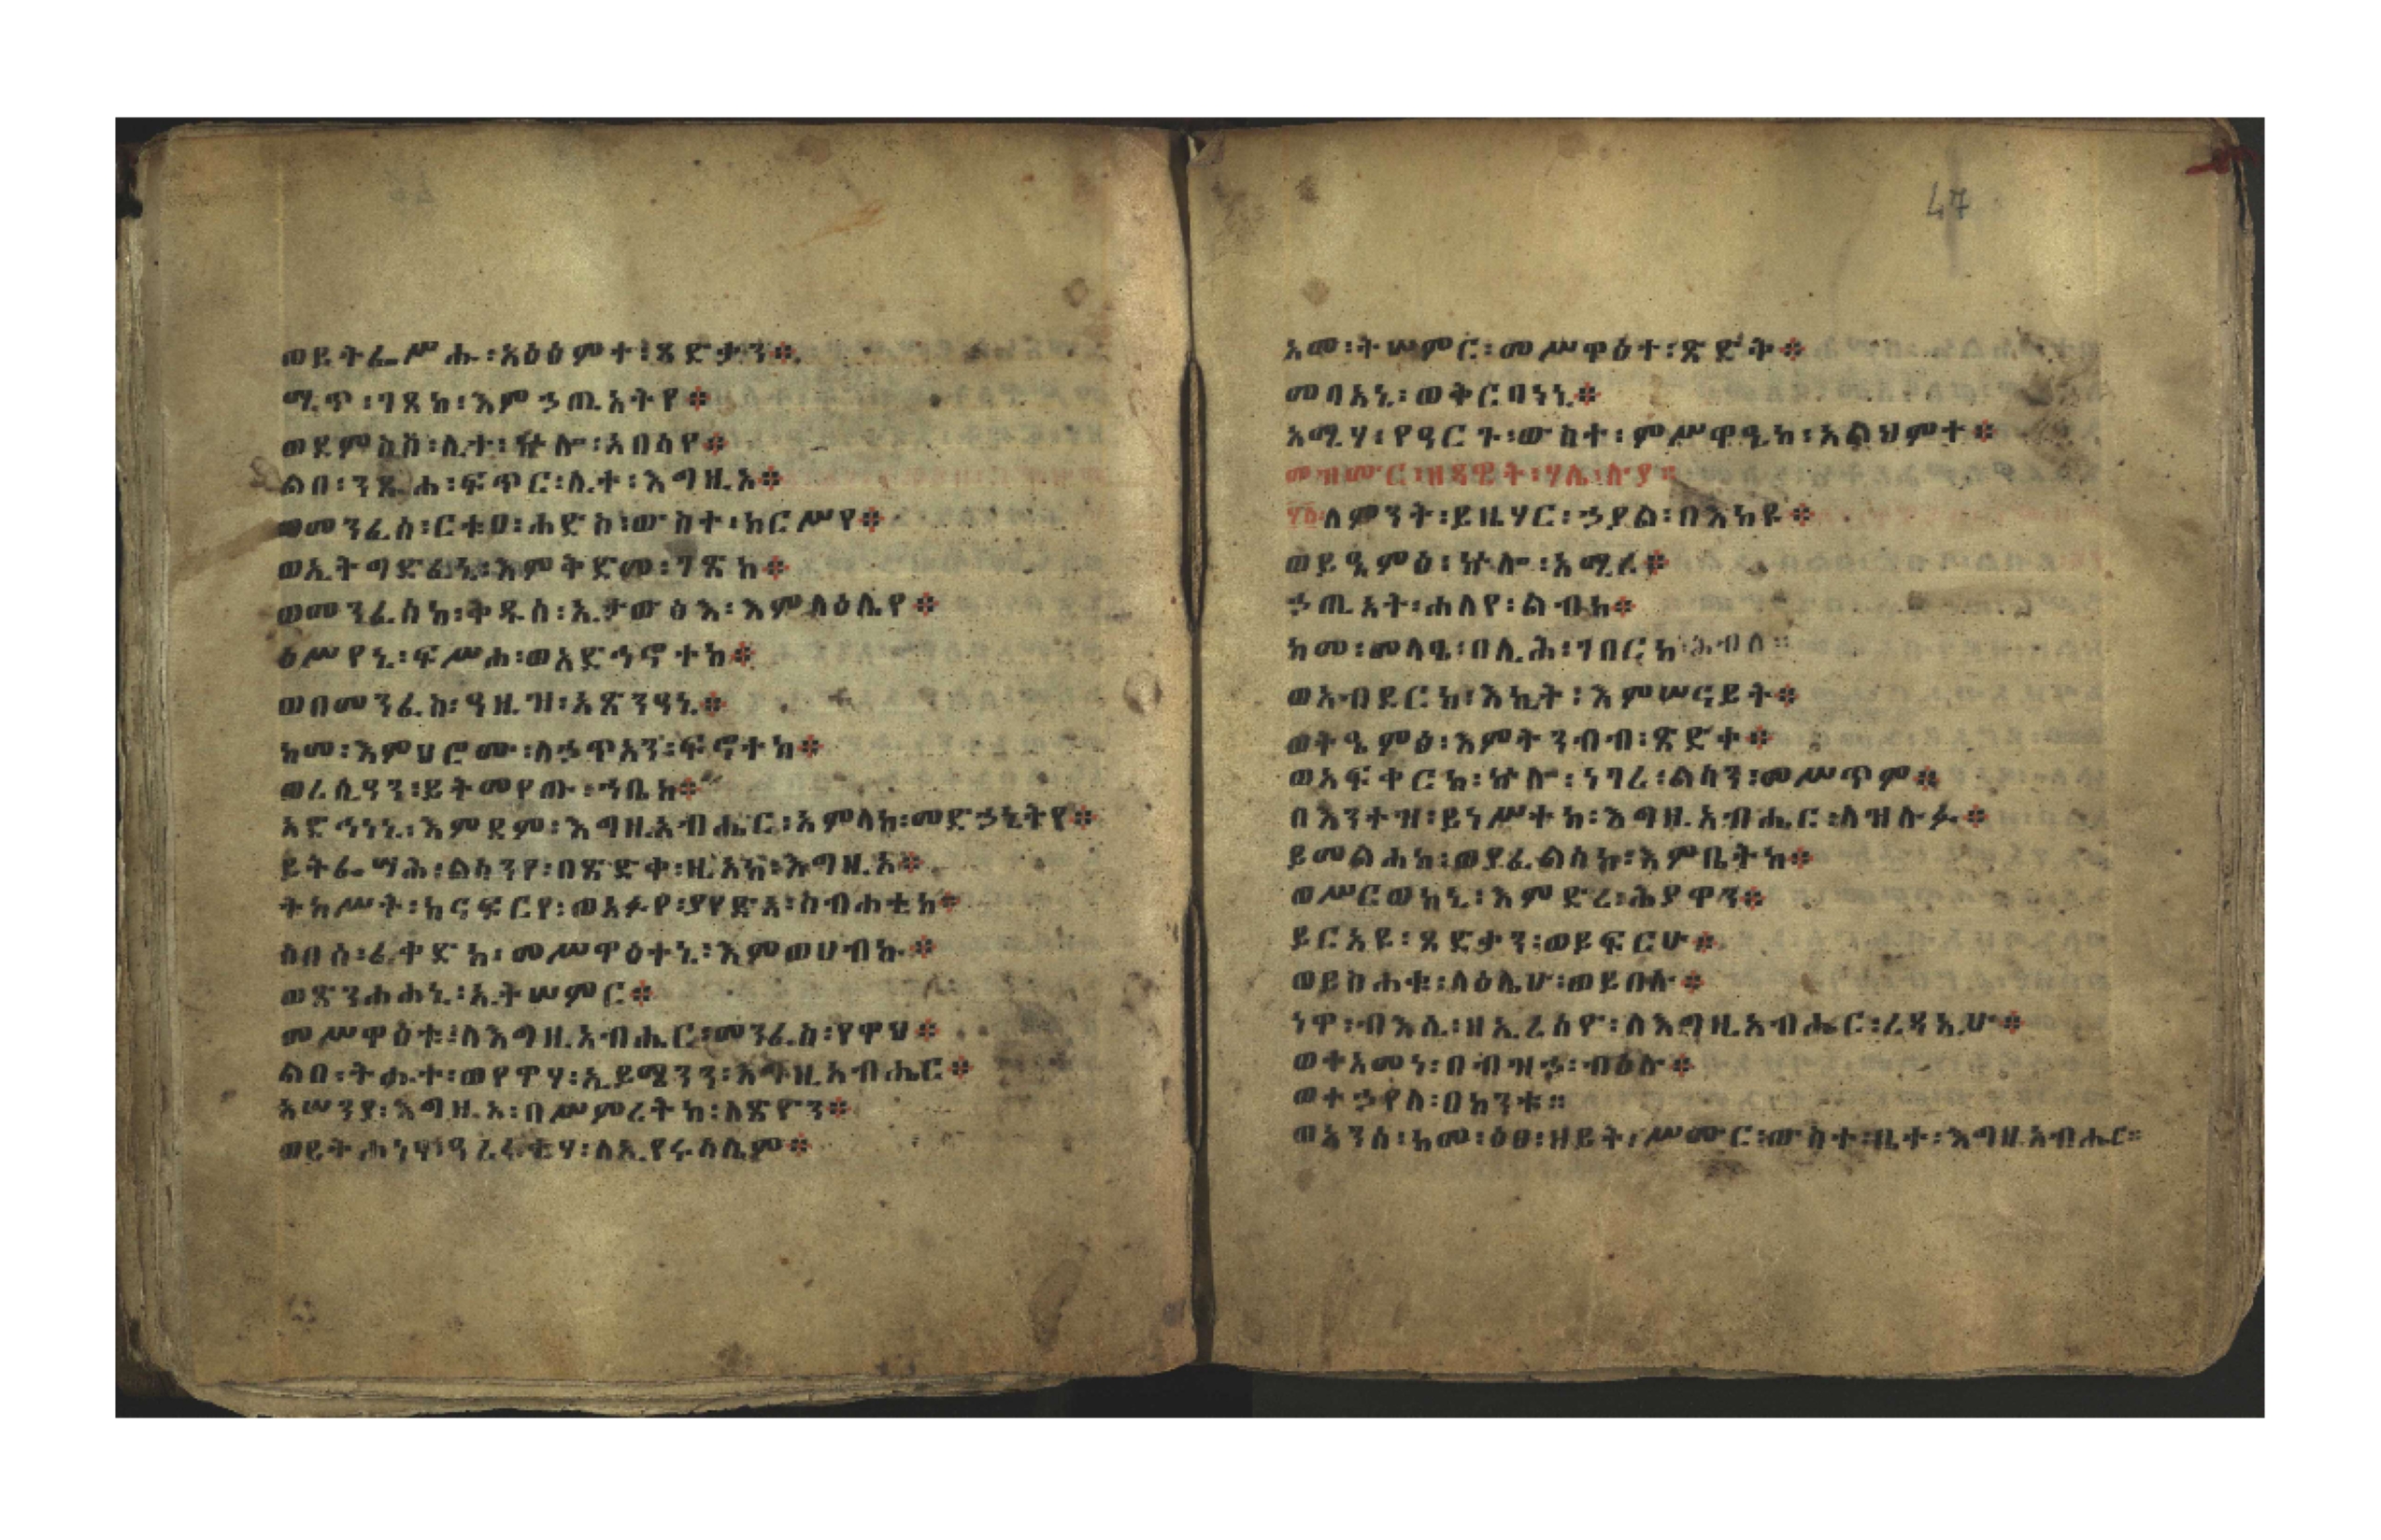 ወይትፌሥሑ፡አዕፅምተ፡ጻድቃን።
ሚጥ፡ገጸከ፡እምኃጢአትየ።
ወደምስስ፡ሊተ፡ኵሎ፡አበሳየ።
ልበ፡ንጹሐ፡ፍጥር፡ሊተ፡እግዚኦ።
ወመንፈሰ፡ርቱዐ፡ሐድስ፡ውስተ፡ከርሥየ።
ወኢትግድፈኒ፡እምቅድመ፡ገጽከ።
ወመንፈሰከ፡ቅዱሰ፡ኢታውፅእ፡እምላዕሌየ።
ዕሥየኒ፡ፍሥሐ፡ወአድኅኖተከ።
ወበመንፈስ፡ዓዚዝ፡አጽንዓኒ።
ከመ፡እምህሮሙ፡ለኃጥአን፡ፍኖተከ።
ወረሲዓን፡ይትመየጡ፡ኀቤከ።
አድኅነኒ፡እምደም፡እግዚአብሔር፡አምላከ፡መድኃኒትየ።
ይትፌሣሕ፡ልሳንየ፡በጽድቀ፡ዚአከ፡እግዚኦ።
ትከሥት፡ከናፍርየ፡ወአፉየ፡ያየድዕ፡ስብሐቲከ።
ሶበሰ፡ፈቀድከ፡መሥዋዕተኒ፡እምወሀብኩ።
ወጽንሐሐኒ፡ኢትሠምር።
መሥዋዕቱ፡ለእግዚአብሔር፡መንፈስ፡የዋህ።
ልበ፡ትሑተ፡ወየዋሃ፡ኢይሜንን፡እግዚአብሔር።
አሠንያ፡እግዚኦ፡በሥምረትከ፡ለጽዮን።
ወይትሐነፃ፡ዓረፋቲሃ፡ለኢየሩሳሌም።
አመ፡ትሠምር፡መሥዋዕተ፡ጽድቅ።
መባአኒ፡ወቍርባነኒ።
አሜሃ፡የዓርጉ፡ውስተ፡ምሥዋዒከ፡አልህምተ።
መዝሙር፡ዘዳዊት፡ሃሌ፡ሉያ።
፶፩ለምንት፡ይዜሃር፡ኃያል፡በእከዩ።
ወይዔምፅ፡ኵሎ፡አሚረ።
ኃጢአት፡ሐለየ፡ልብከ።
ከመ፡መላፄ፡በሊሕ፡ገበርከ፡ሕብለ።
ወአብደርከ፡እኪት፡እምሠናይት።
ወትዔምፅ፡እምትንብብ፡ጽድቀ።
ወአፍቀርከ፡ኵሎ፡ነገረ፡ልሳን፡መሥጥም።
በእንተዝ፡ይነሥተከ፡እግዚአብሔር፡ለዝሉፉ።
ይመልሐከ፡ወያፈልሰከ፡እምቤትከ።
ወሥርወከኒ፡እምድረ፡ሕያዋን።
ይርአዩ፡ጻድቃን፡ወይፍርሁ።
ወይስሐቁ፡ላዕሌሁ፡ወይበሉ።
ነዋ፡ብእሲ፡ዘኢረሰዮ፡ለእግዚአብሔር፡ረዳኢሁ።
ወተአመነ፡በብዝኃ፡ብዕሉ።
ወተኃየለ፡በከንቱ።
ወአንሰ፡ከመ፡ዕፀ፡ዘይት፡ሥሙር፡ውስተ፡ቤተ፡እግዚአብሔር።
47